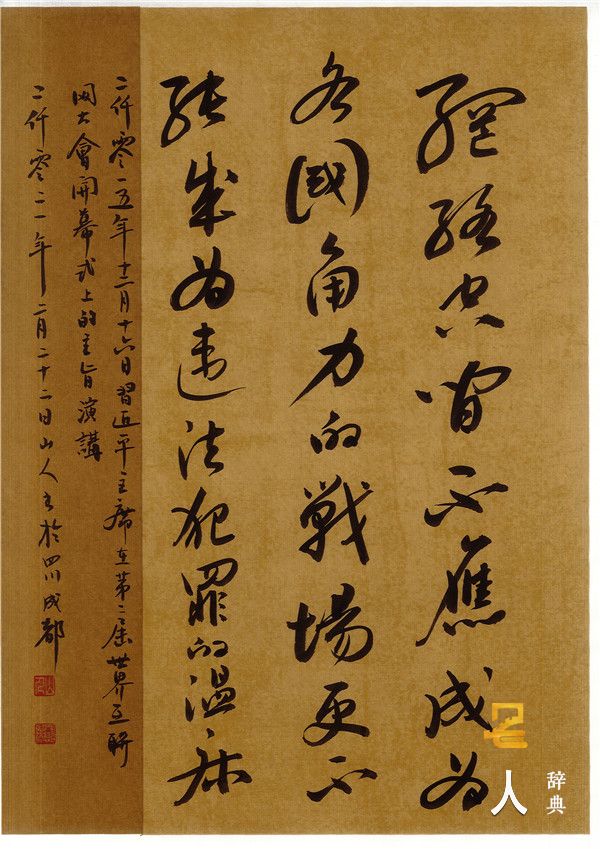 網絡空間不應成为
各國角力的戰場更不
能成为違法犯罪的温床
二仟零一五年十二月十六日習近平主席在第二届世界互聯
网大會開幕式上的主旨演講
二仟零二一年二月二十二日山人书於四川成都
名人辞典